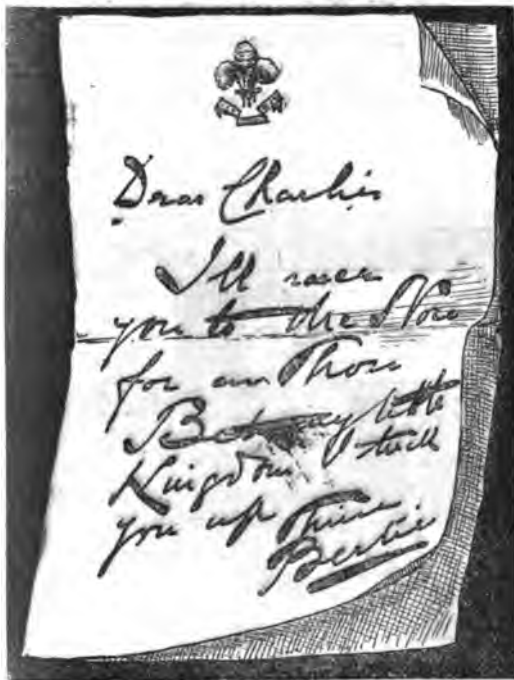 Dear Charlie
I'll race
you to the Nore
for Thou
Bet my little
Kingdom I
you up Thine
Bertie